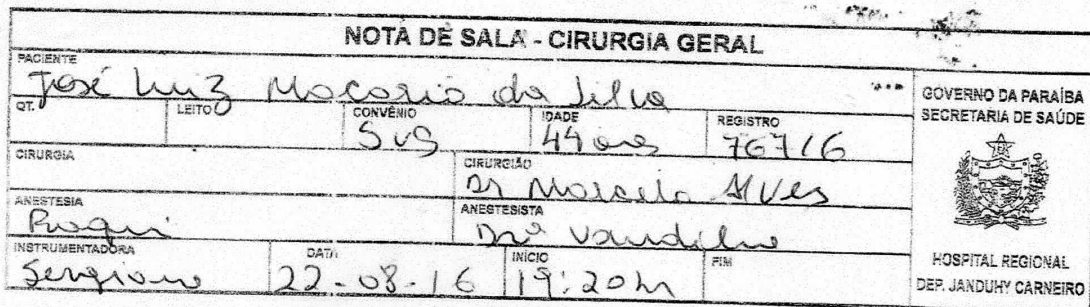 NOTA DE SALA - CIRURGIA GERAL
PACIENTE
José Luiz Macario da Silva
QT. LEITO CONVÊNIO IDADE REGISTRO
SUS 44 anos 76716
CIRURGIA CIRURGIÃO
Dr Marcelo Alves
ANESTESIA ANESTESISTA
Raqui Drº
INSTRUMENTADORA DATA INÍCIO FIM
22-08-16 19:20h
GOVERNO DA PARAÍBA
SECRETARIA DE SAÚDE
HOSPITAL REGIONAL
DEP. JANDUHY CARNEIRO